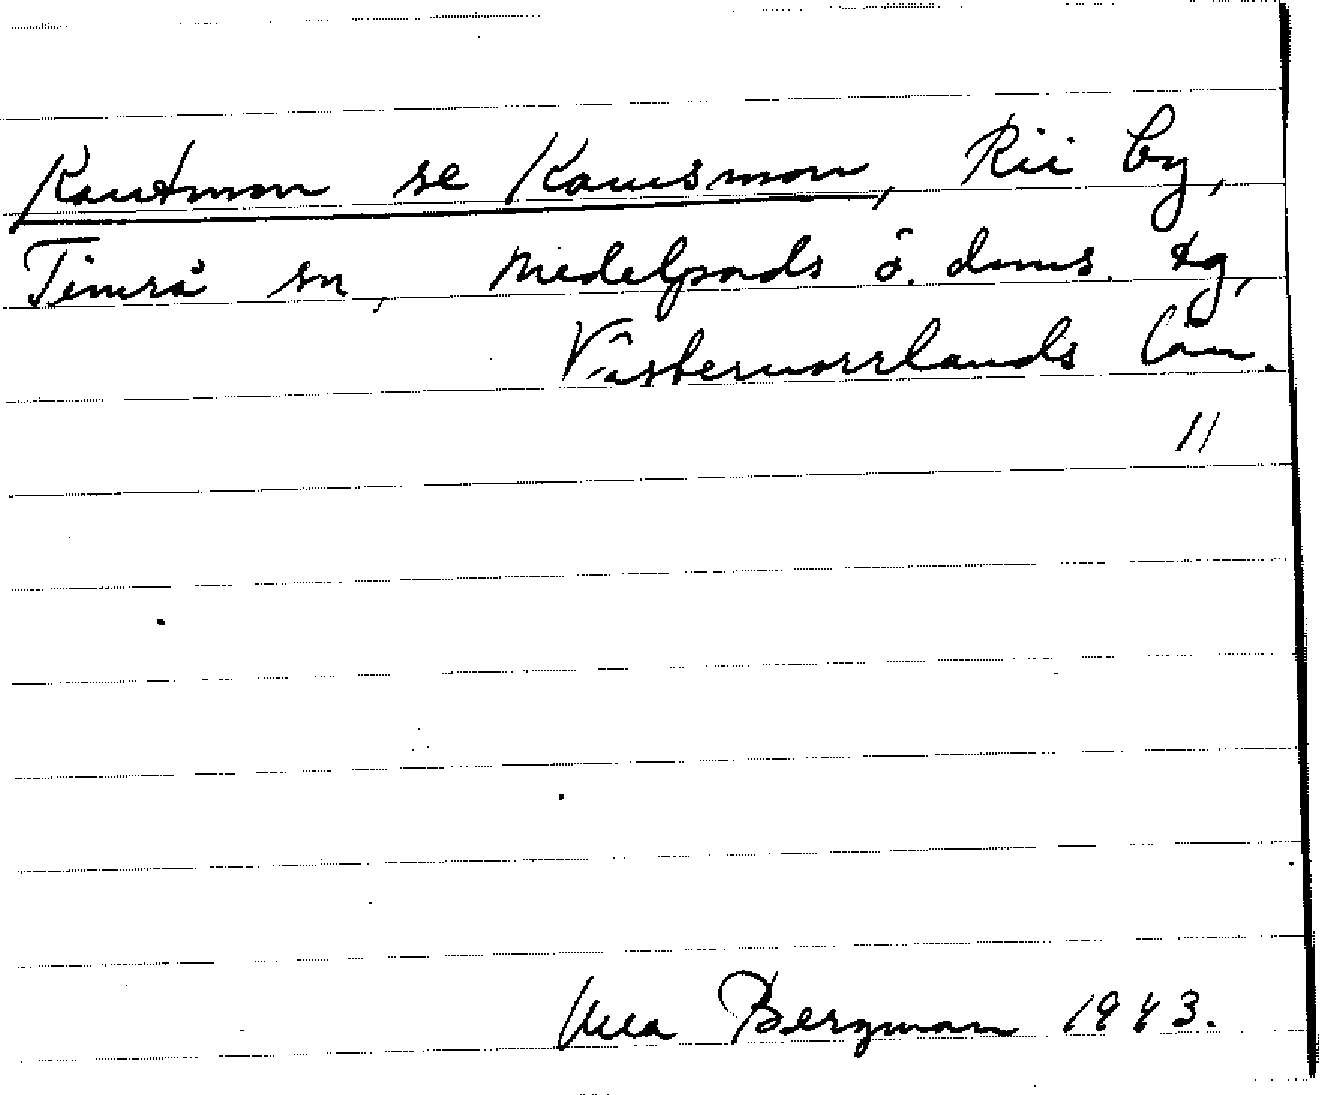 Kantmon se Kansmon, Rii by,
Timrå sn, Medelpads ö. doms. tg,
Västernorrlands län.
11
Bergman 1943.